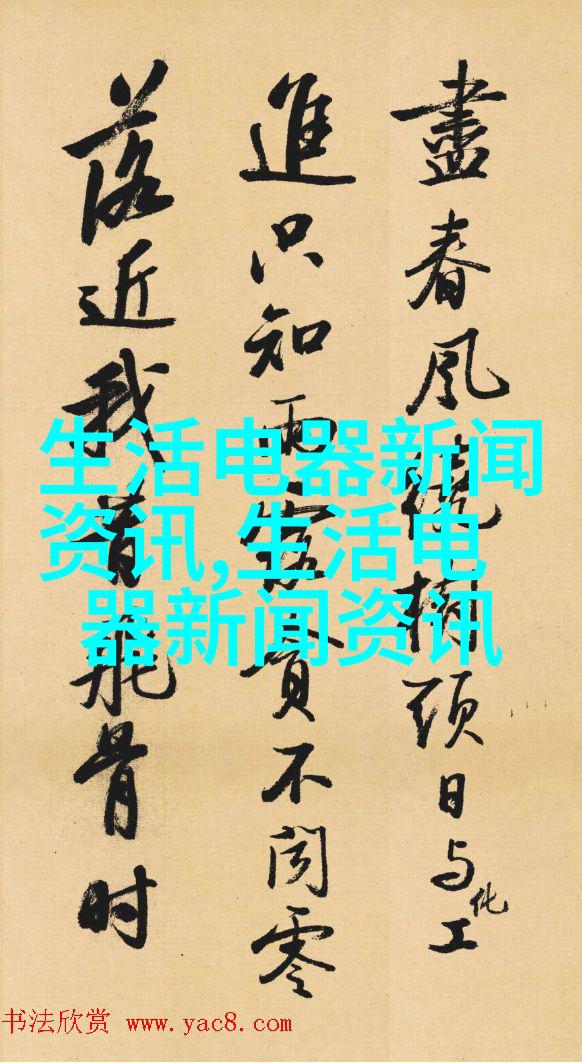 盡春風繞樹頭日与化工
進只知雨露貪不聞零
落近我昔飛骨时
生活电器新闻
资讯,生活电
器新闻资讯
书法欣赏 www.yac8.com